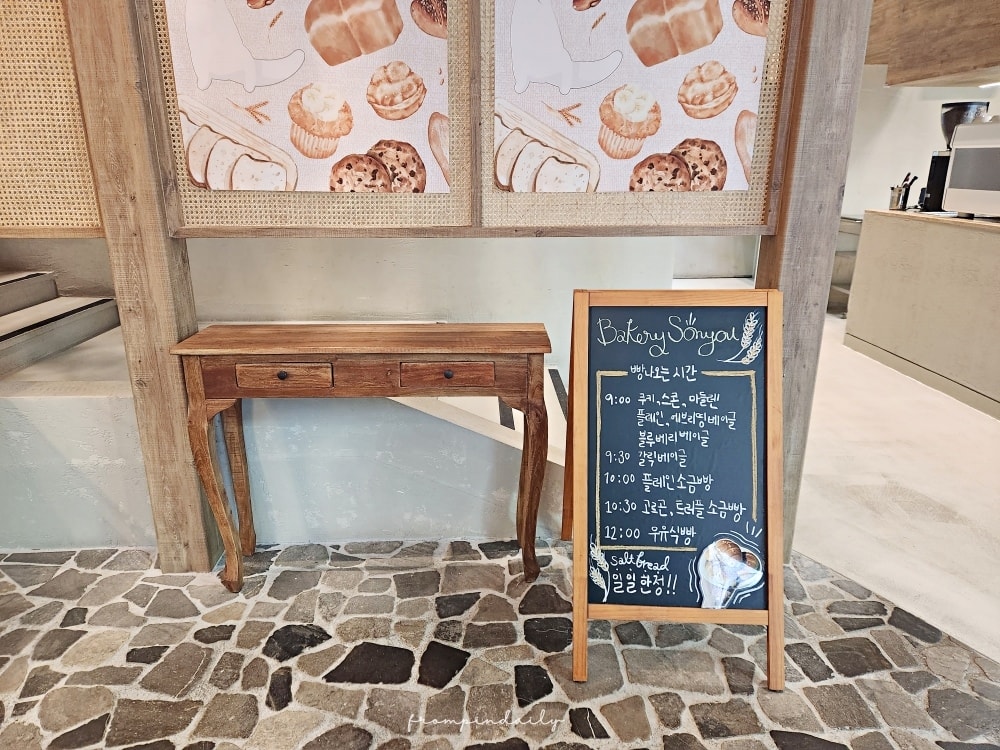 Bakery Sonyou
빵 나오는 시간
9:00 쿠키, 스콘, 마들렌
플레인, 에브리띵 베이글
블루베리 베이글
9:30 갈릭 베이글
10:00 플레인 소금빵
10:30 고르곤, 트러플 소금빵
12:00 우유식빵
Salt bread
일일 한정!!
frompindaily